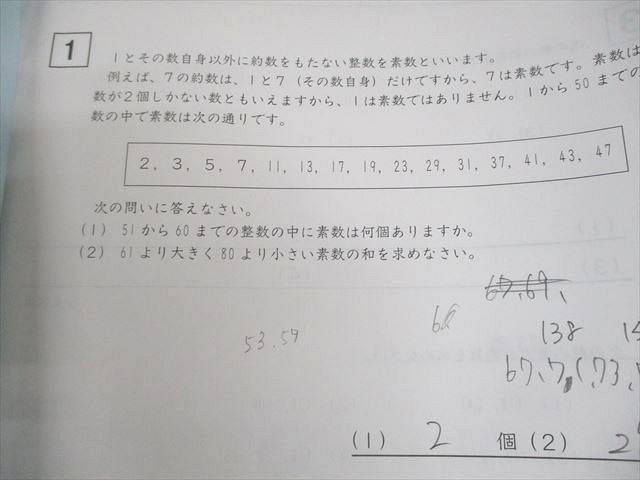 1
1とその数自身以外に約数をもたない整数を素数といいます。
例えば、7の約数は、1と7（その数自身）だけですから、7は素数です。素数は
数が2個しかない数ともいえますから、1は素数ではありません。1から50までの
数の中で素数は次の通りです。
2, 3, 5, 7, 11, 13, 17, 19, 23, 29, 31, 37, 41, 43, 47
次の問いに答えなさい。
(1) 51から60までの整数の中に素数は何個ありますか。
(2) 61より大きく80より小さい素数の和を求めなさい。
53.59
138
67、71、73、
(1) 2 個 (2) 2